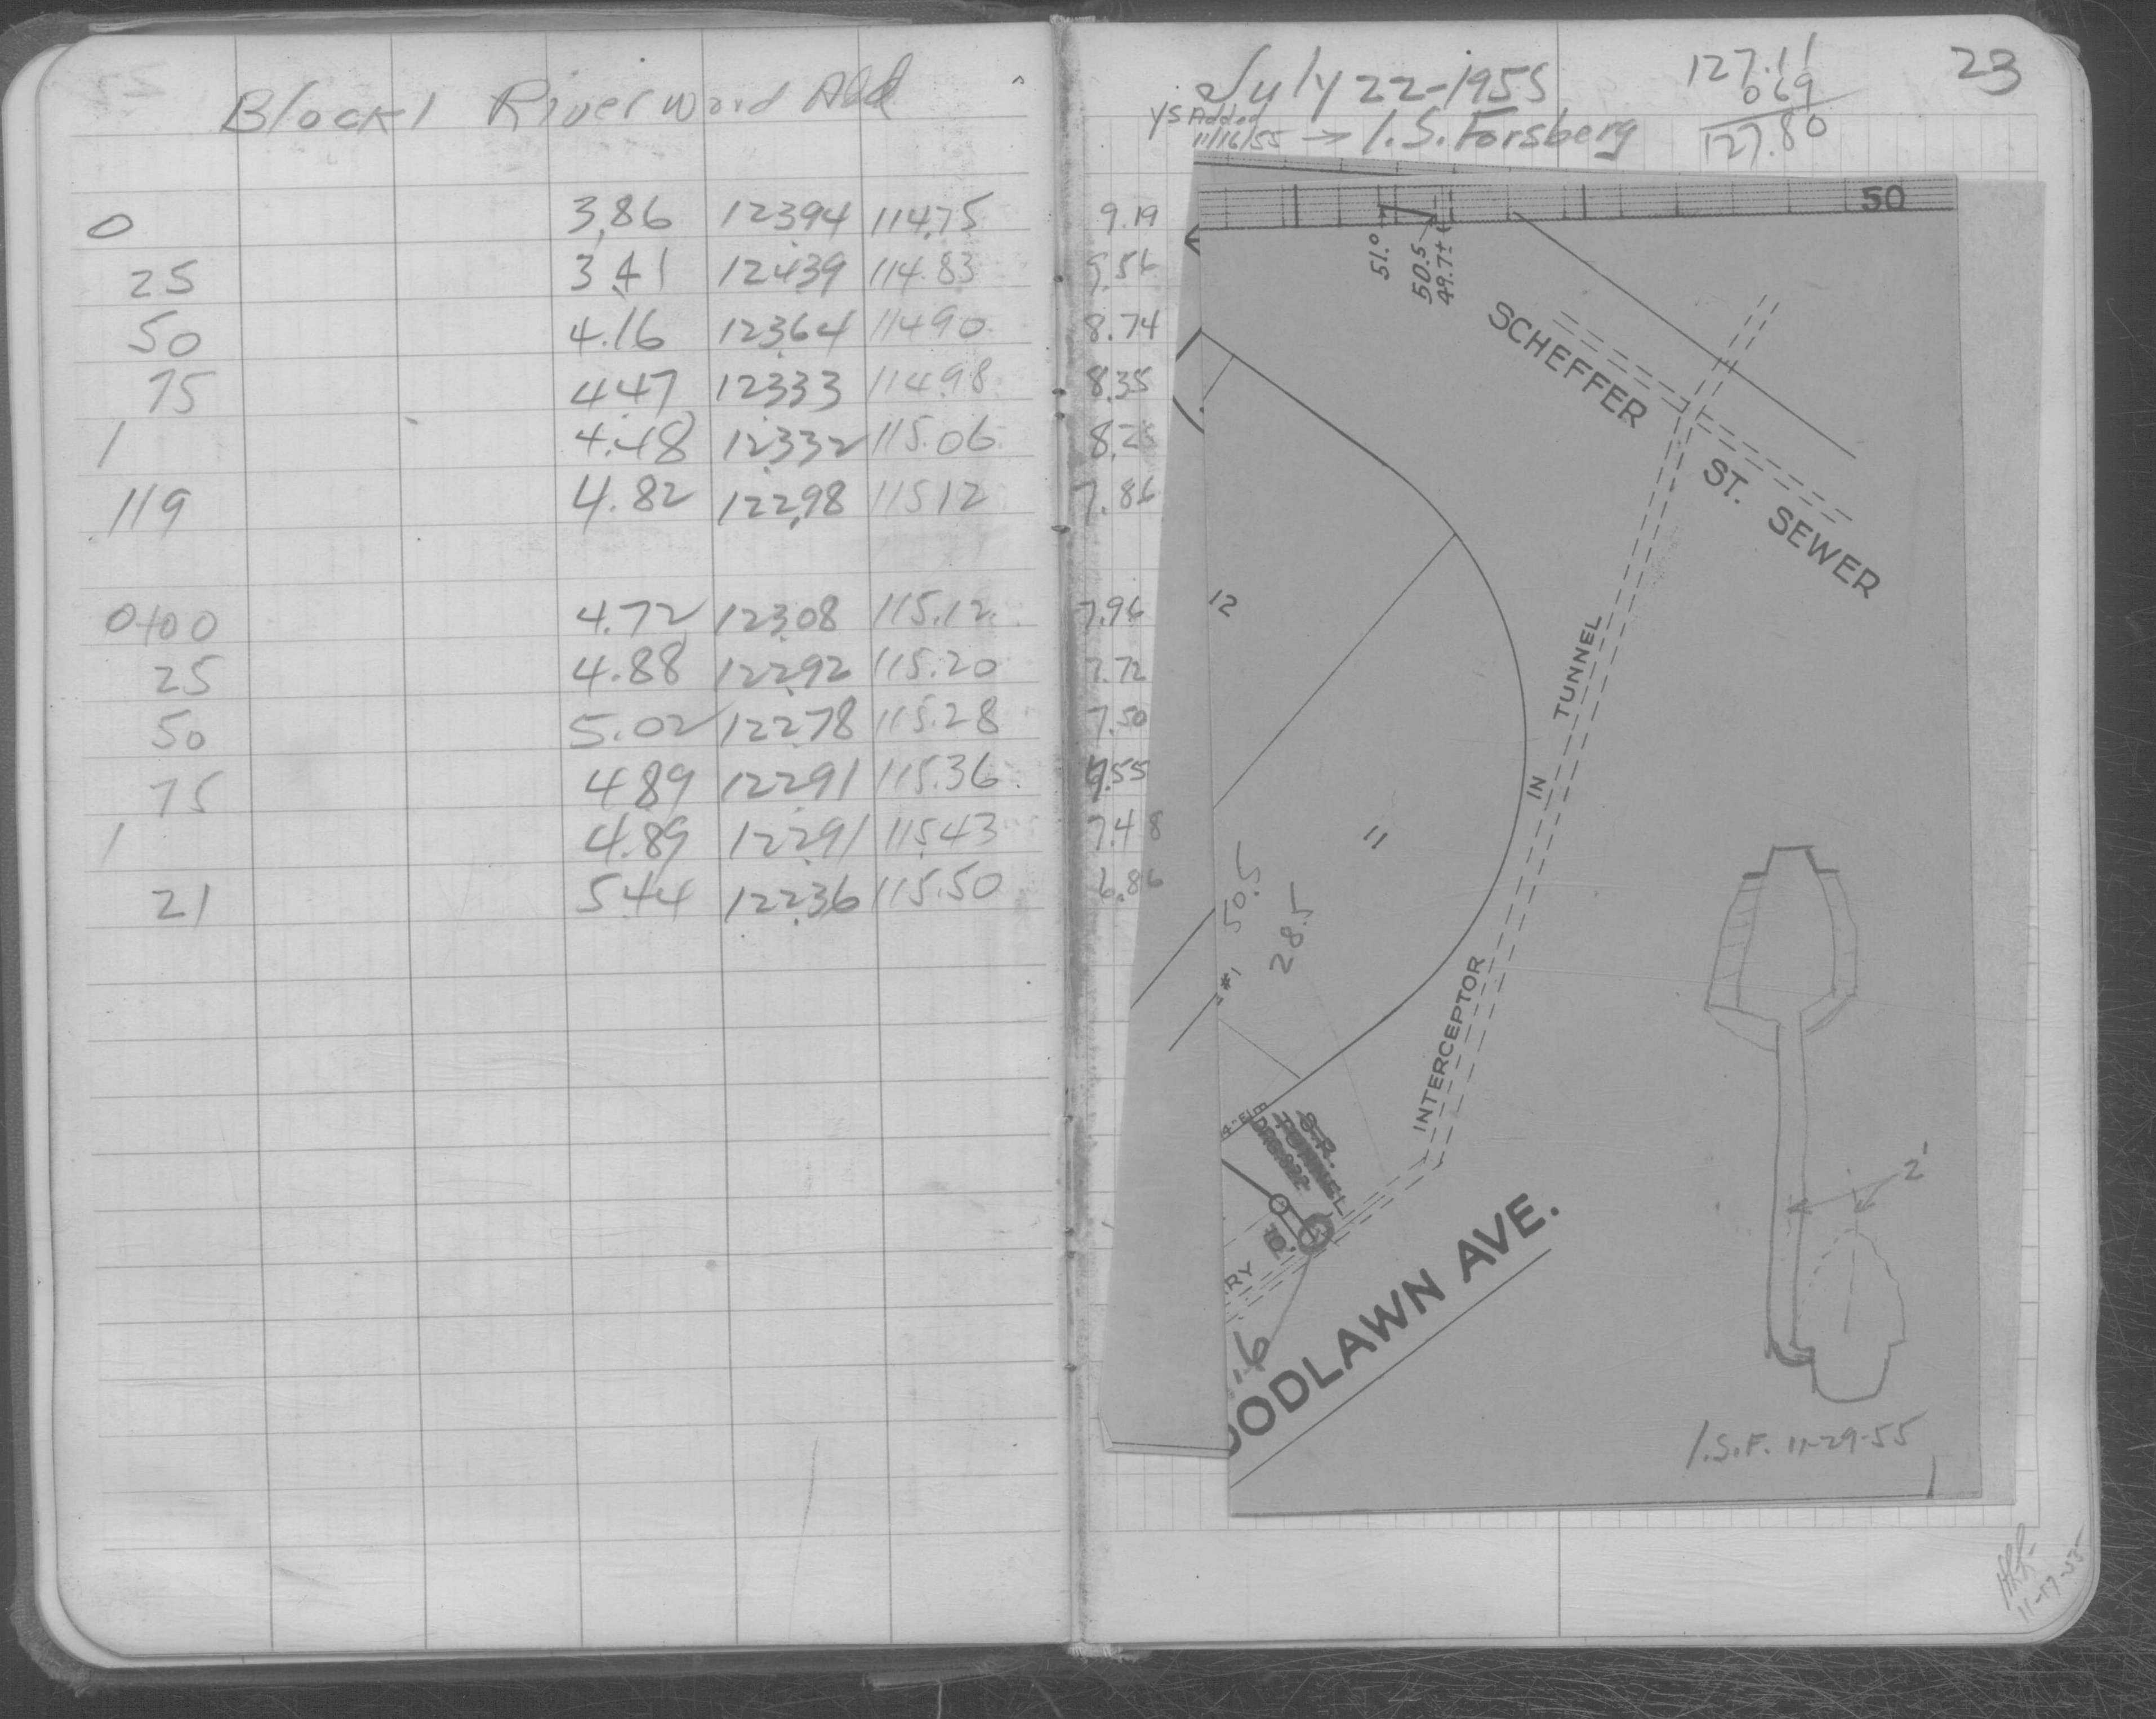 Block 1 River Wood Add
0 3.86 123.94 114.75 9.19
25 3.41 124.39 114.83 9.56
50 4.16 123.64 114.90 8.74
75 4.47 123.33 114.98 8.35
1 4.48 123.32 115.06 8.26
119 4.82 122.98 115.12 7.86
0+00 4.72 123.08 115.12 7.96
25 4.88 122.92 115.20 7.72
50 5.02 122.78 115.28 7.50
75 4.89 122.91 115.36 7.55
1 4.89 122.91 115.43 7.48
21 5.44 122.36 115.50 6.86
July 22-1955
127.11
069
127.80
23
YS Added
11/16/55 → I.S. Forsberg
50
51.0
50.5
49.7±
SCHEFFER ST. SEWER
12
INTERCEPTOR IN TUNNEL
11
50.5
28.5
#1
4" Elm
RY
OODLAWN AVE.
2'
I.S.F. 11-29-55